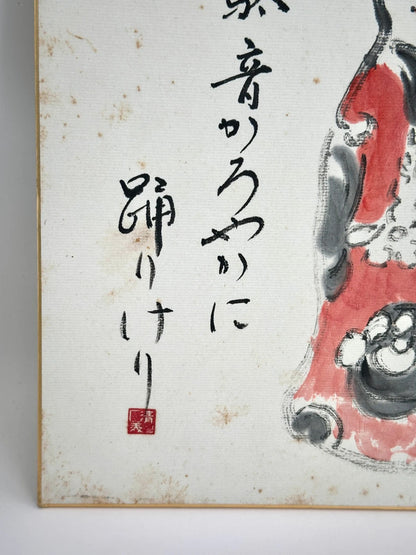 音かろやかに
踊りけり